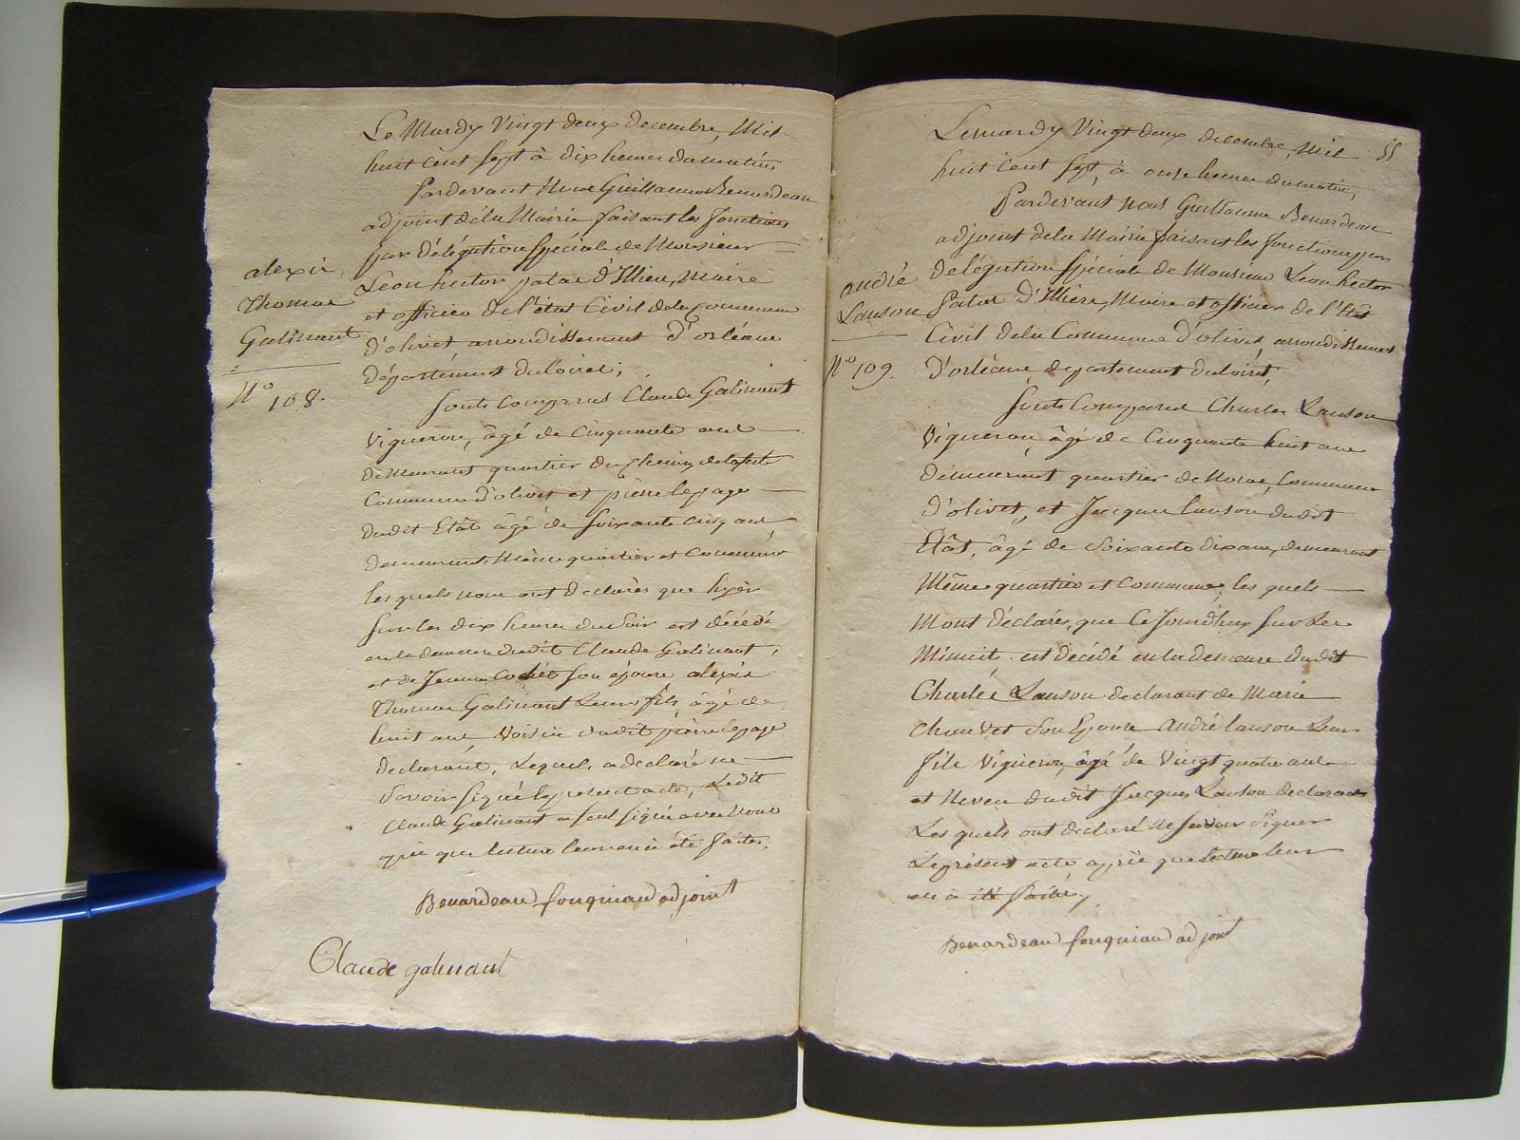 Le Mardy Vingt deux decembre, Mil
huit cent sept à dix heures du matin,
Pardevant Nous Guillaume Benardeau
adjoint de la Mairie faisant les fonctions
par délégation spéciale de Monsieur
Leon hector patas d'Illiers, Maire
et officier de l'état Civil de la commune
d'olivet arrondissement d'orléans
département du Loiret;
Sont Comparus Claude Galinant
Vigneron, âgé de Cinquante ans
demeurant quartier du
Commune d'olivet et pierre lepage
dudit Etât âgé de soixante cinq ans
demeurant Même quartier et Commune
lesquels nous ont declarés que hyer
sur les dix heures du Soir est décédé
en la demeure dudit Claude Galinant,
et de Jeanne son épouse alexis
Thomas Galinant Leurs fils, âgé de
huit ans Voisin dudit pierre lepage
declarant, Lequel a declaré ne
Savoir signé le présent acte, Ledit
Claude Galinant a seul signé avec Nous
après que lecture leur en a été faites.
Benardeau fouqniau adjoint
Claude galinant
alexis
Thomas
Galinant
N° 108.
55
Le mardy Vingt deux decembre, Mil
huit Cent sept, à onze heures du matin,
Pardevant nous Guillaume Benardeau
adjoint de la Mairie faisant les fonctions par
délégation spéciale de Monsieur Leon hector
Patas D'Illiers, Maire et officier de l'Etât
Civil de la Commune d'olivet arrondissement
D'orléans departement du loiret,
Sont Comparus Charles Lanson
Vigneron, âgé de Cinquante huit ans
demeurant quartier de Commune
d'olivet, et Jacques lanson dudit
Etât, âgé de Soixante dix ans, demeurant
Même quartier et Commune, les quels
Mont déclarés, que Ce Jourd'huy sur Les
Minuit est décédé en la demeure dudit
Charles Lanson declarant de Marie
Chauvet Son Epouse André lanson Leur
fils Vigneron, âgé de Vingt quatre ans
et Neveu dudit Jacques Lanson declarant
Les quels ont declaré ne savoir Signer
Le présent acte après que lecture leur
en a été faite,
Benardeau fouqniau adjoint
andré
Lanson
N° 109.